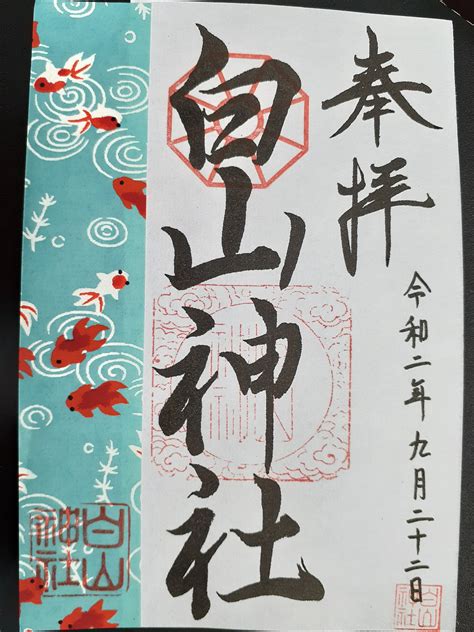 奉拝
白山神社
令和二年九月二十二日
白山
神社
白山
神社